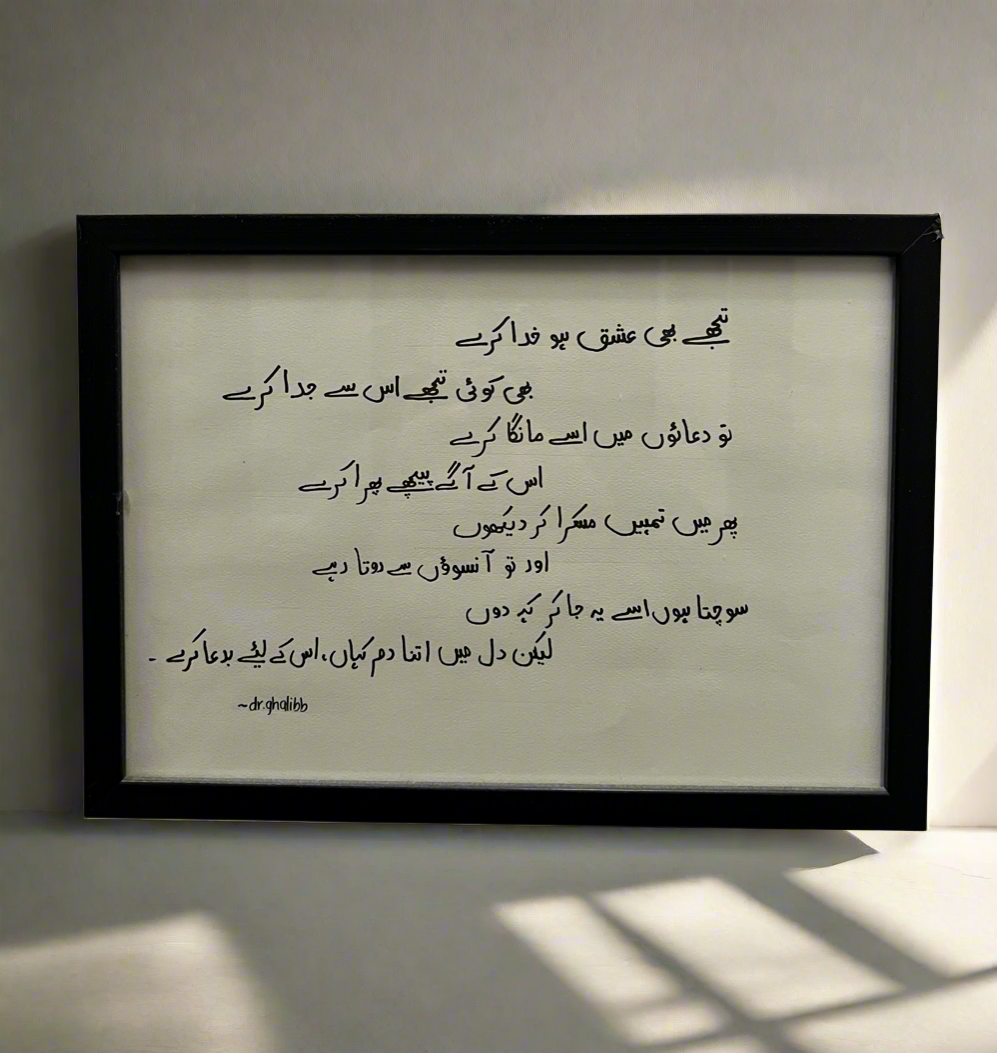 تجھے بھی عشق ہو خدا کرے
بھی کوئی تجھے اس سے جدا کرے
تو دعائوں میں اسے مانگا کرے
اس کے آگے پیچھے پھرا کرے
پھر میں تمہیں مسکرا کر دیکھوں
اور تو آنسوؤں سے روتا رہے
سوچتا ہوں اسے یہ جا کر کہہ دوں
لیکن دل میں اتنا دم کہاں، اس کے لیئے بدعا کرے ۔
~dr.ghalibb